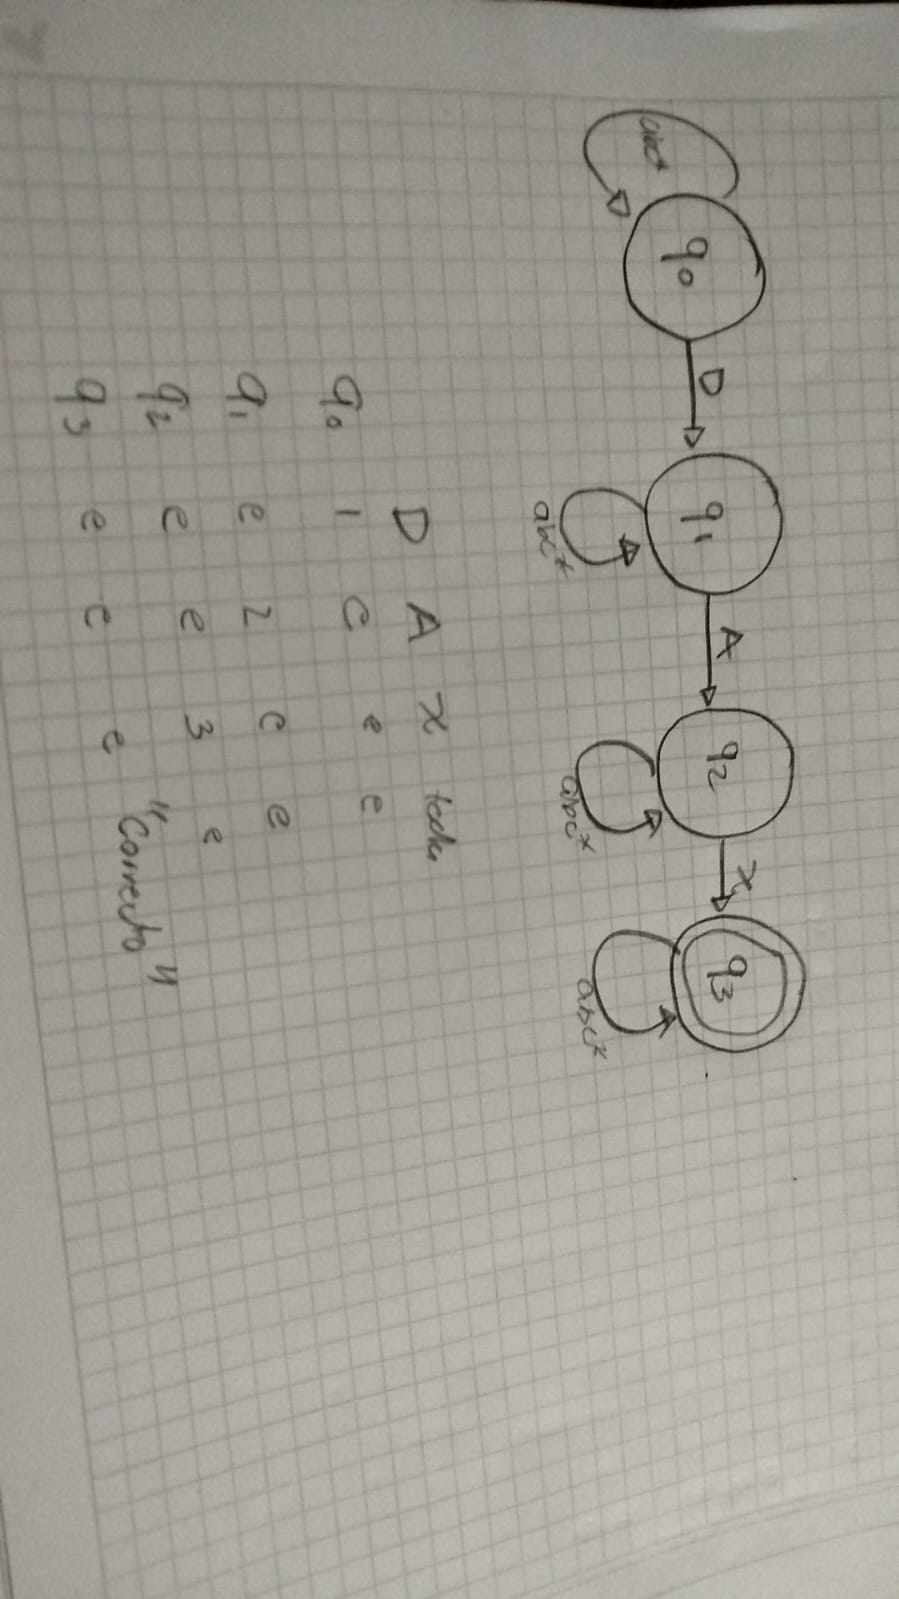 abc*
q0 D q1 A q2 x q3
abc* abc* abc*
D A x
q0 1 e e e
q1 e 2 e e
q2 e e 3 e
q3 e e e "Correcto"